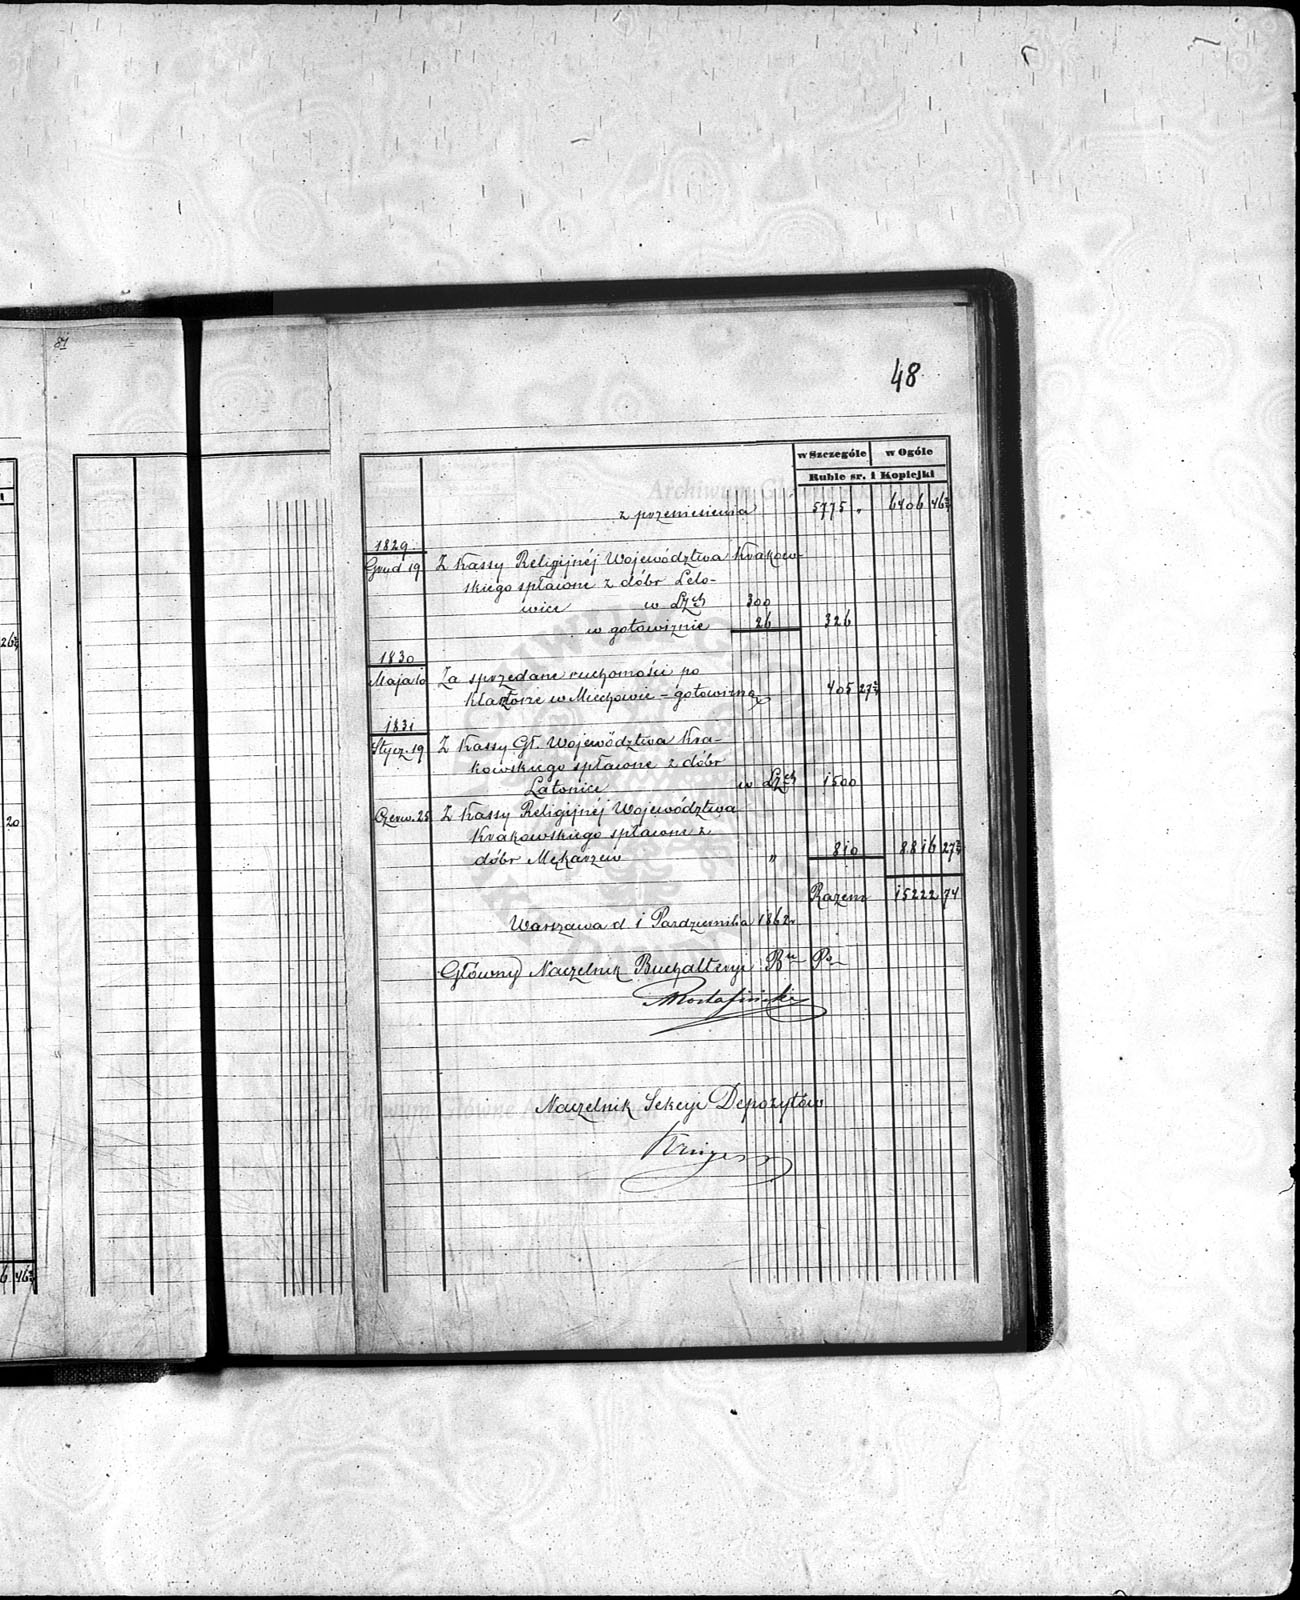 81
48
w Szczególe w Ogóle
Ruble sr. i Kopiejki
z przeniesienia 5775 „ 6406 46½
1829
Grud 19 Z Kassy Religijnéj Województwa Krakow-
skiego spłacone z dóbr Lelo-
wice w LZch 300
w gotowiznie 26 326
1830
Maja 10 Za sprzedane ruchomości po
Klasztorze w Miechowie – gotowizną 405 27½
1831
Stycz. 19 Z Kassy Gł. Województwa Kra-
kowskiego spłacone z dóbr
Latonice w LZch 1500
Czerw. 25 Z Kassy Religijnéj Województwa
Krakowskiego spłacone z
dóbr Mękarzew „ 810 8816 27½
Razem 15222 74
Warszawa d 1 Pazdziernika 1862 r
Główny Naczelnik Buchalteryi Bu Pa
Naczelnik Sekcyi Depozytów
26½
20
6 46½